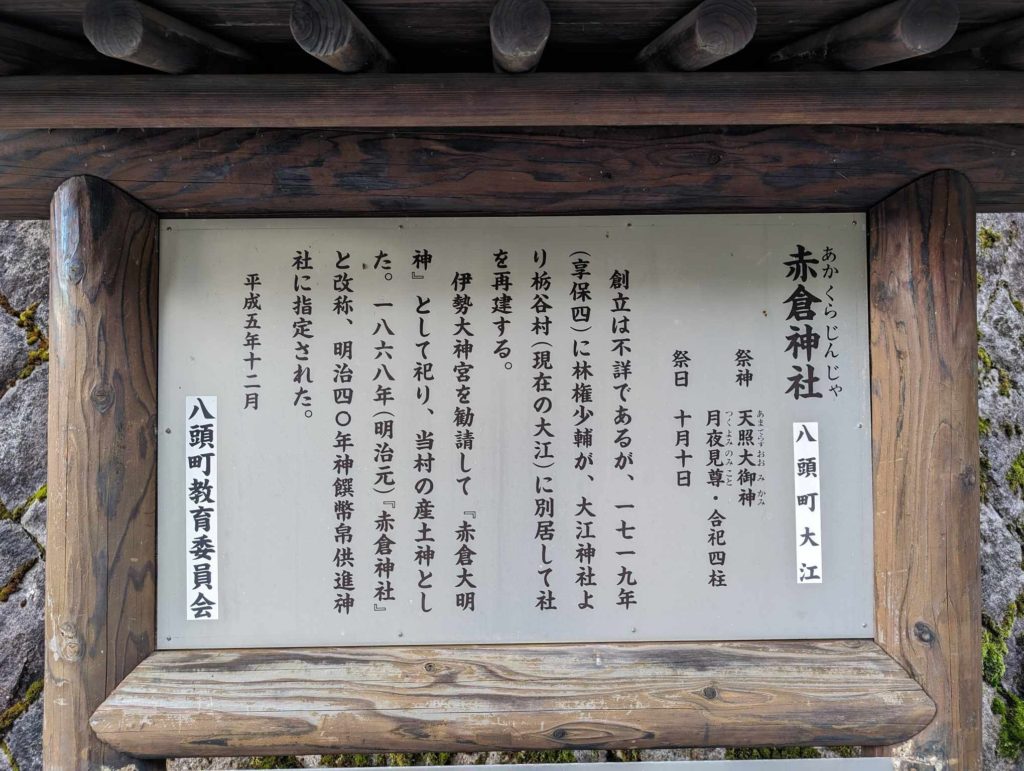 赤倉神社
あかくらじんじゃ
八頭町大江
祭神 天照大御神
あまてらすおおみかみ
月夜見尊・合祀四柱
つくよみのみこと
祭日 十月十日
創立は不詳であるが、一七一九年
(享保四)に林権少輔が、大江神社よ
り栃谷村(現在の大江)に別居して社
を再建する。
伊勢大神宮を勧請して『赤倉大明
神』として祀り、当村の産土神とし
た。一八六八年(明治元)『赤倉神社』
と改称、明治四〇年神饌幣帛供進神
社に指定された。
平成五年十二月
八頭町教育委員会